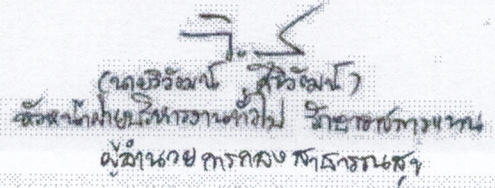 ว.ร
(นายวิวัฒน์ ศิริวัฒน์)
หัวหน้าฝ่ายบริหารงานทั่วไป รักษาราชการแทน
ผู้อำนวยการกองสาธารณสุข